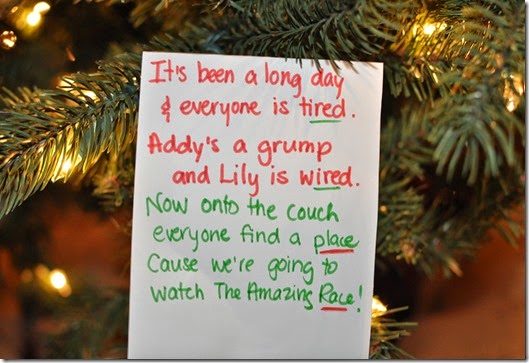 It's been a long day
& everyone is tired.
Addy's a grump
and Lily is wired.
Now onto the couch
everyone find a place
Cause we're going to
watch The Amazing Race!